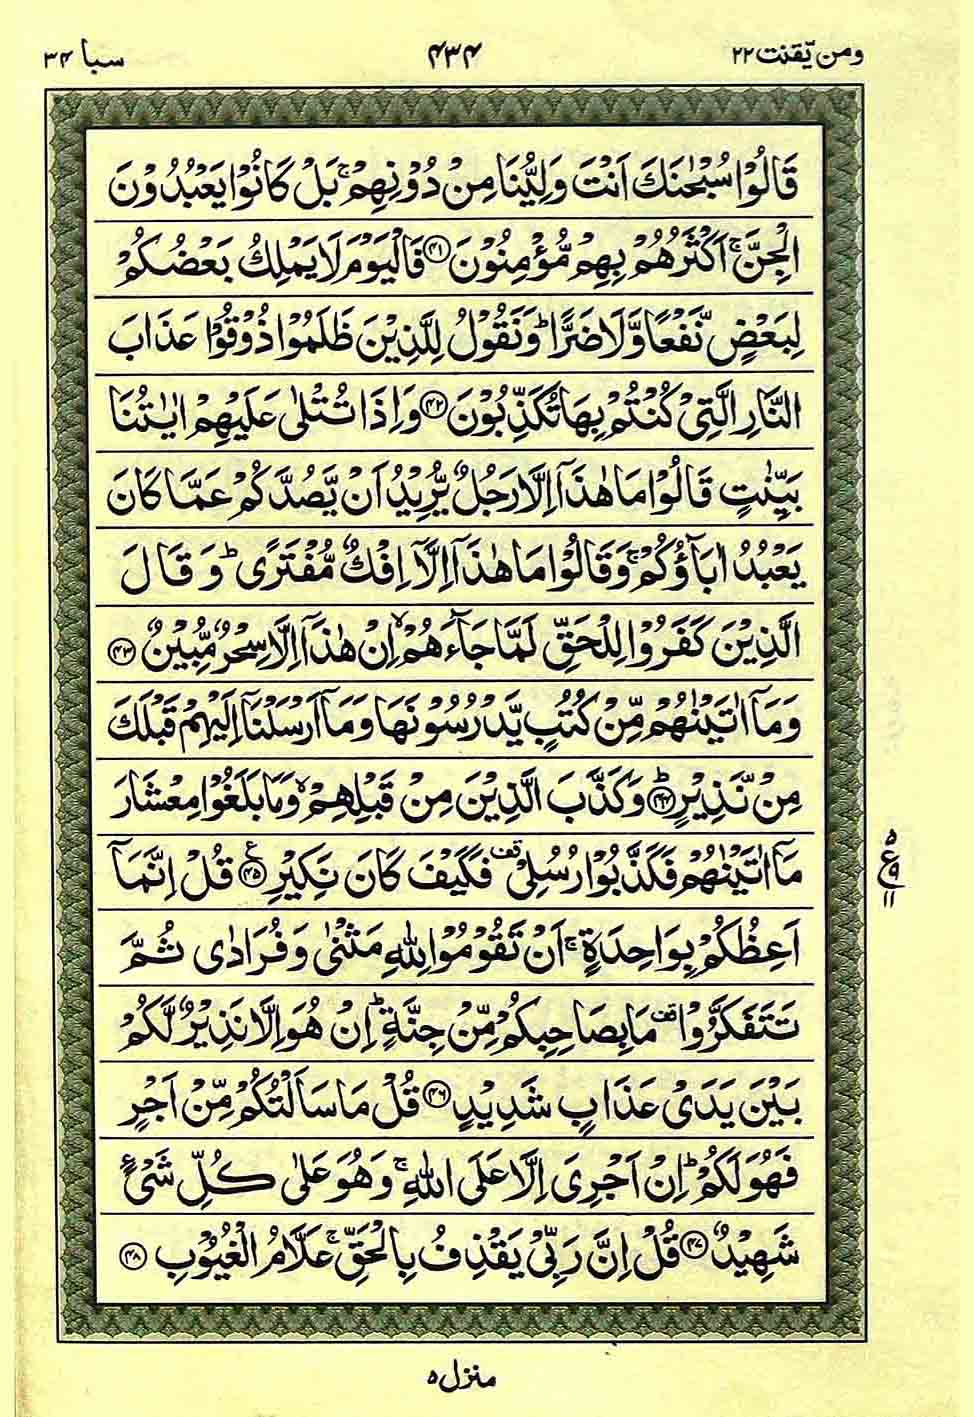 ومن یّقنت ۲۲
۴۳۴
سبا ۳۴
قَالُوْا سُبْحٰنَكَ اَنْتَ وَلِيُّنَا مِنْ دُوْنِهِمْ ۚ بَلْ كَانُوْا يَعْبُدُوْنَ
الْجِنَّ ۚ اَكْثَرُهُمْ بِهِمْ مُّؤْمِنُوْنَ ﴿۴۱﴾ فَالْيَوْمَ لَا يَمْلِكُ بَعْضُكُمْ
لِبَعْضٍ نَّفْعًا وَّلَا ضَرًّا ؕ وَنَقُوْلُ لِلَّذِيْنَ ظَلَمُوْا ذُوْقُوْا عَذَابَ
النَّارِ الَّتِىْ كُنْتُمْ بِهَا تُكَذِّبُوْنَ ﴿۴۲﴾ وَاِذَا تُتْلٰى عَلَيْهِمْ اٰيٰتُنَا
بَيِّنٰتٍ قَالُوْا مَا هٰذَاۤ اِلَّا رَجُلٌ يُّرِيْدُ اَنْ يَّصُدَّكُمْ عَمَّا كَانَ
يَعْبُدُ اٰبَآؤُكُمْ ۚ وَقَالُوْا مَا هٰذَاۤ اِلَّاۤ اِفْكٌ مُّفْتَرًى ؕ وَقَالَ
الَّذِيْنَ كَفَرُوْا لِلْحَقِّ لَمَّا جَآءَهُمْ ۙ اِنْ هٰذَاۤ اِلَّا سِحْرٌ مُّبِيْنٌ ﴿۴۳﴾
وَمَاۤ اٰتَيْنٰهُمْ مِّنْ كُتُبٍ يَّدْرُسُوْنَهَا وَمَاۤ اَرْسَلْنَاۤ اِلَيْهِمْ قَبْلَكَ
مِنْ نَّذِيْرٍ ﴿۴۴﴾ ؕ وَكَذَّبَ الَّذِيْنَ مِنْ قَبْلِهِمْ ۙ وَمَا بَلَغُوْا مِعْشَارَ
مَاۤ اٰتَيْنٰهُمْ فَكَذَّبُوْا رُسُلِىْ ۟قف فَكَيْفَ كَانَ نَكِيْرِ ﴿۴۵﴾ ع قُلْ اِنَّمَاۤ
اَعِظُكُمْ بِوَاحِدَةٍ ۚ اَنْ تَقُوْمُوْا لِلّٰهِ مَثْنٰى وَفُرَادٰى ثُمَّ
تَتَفَكَّرُوْا ۟قف مَا بِصَاحِبِكُمْ مِّنْ جِنَّةٍ ؕ اِنْ هُوَ اِلَّا نَذِيْرٌ لَّكُمْ
بَيْنَ يَدَىْ عَذَابٍ شَدِيْدٍ ﴿۴۶﴾ قُلْ مَا سَاَلْتُكُمْ مِّنْ اَجْرٍ
فَهُوَ لَكُمْ ؕ اِنْ اَجْرِىَ اِلَّا عَلَى اللّٰهِ ۚ وَهُوَ عَلٰى كُلِّ شَىْءٍ
شَهِيْدٌ ﴿۴۷﴾ قُلْ اِنَّ رَبِّىْ يَقْذِفُ بِالْحَقِّ ۚ عَلَّامُ الْغُيُوْبِ ﴿۴۸﴾
۵
ع ۹
۱۱
منزل ۵